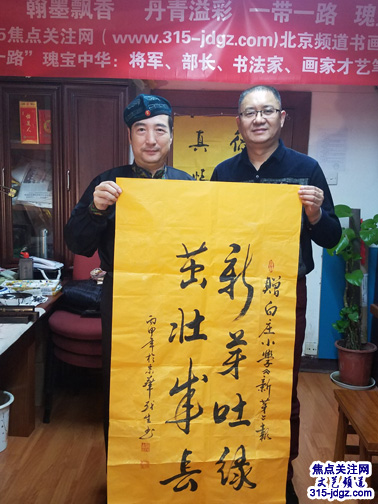 翰墨飘香 丹青溢彩 一带一路 瑰
5焦点关注网（www.315-jdgz.com)北京频道书画
路” 瑰宝中华：将军、部长、书法家、画家才艺笔
真
赠白庄小学新芽报
新芽吐绿
茁壮成长
丙申年於京华
焦点关注网
文艺频道
315-jdgz.com